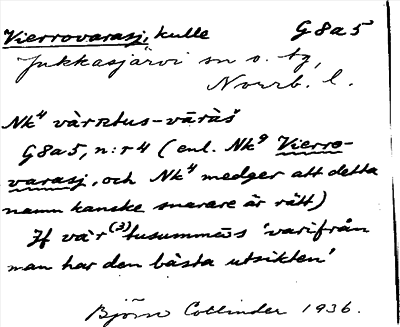 Vierrovarasj, kulle G8a5
Jukkasjärvi sn o. tg,
Norrb. l.
Nk⁴ vàrrtus-vāràš
G8a5, n:r 4 (enl. Nk⁹ Vierro-
varasj, och Nk⁴ medger att detta
namn kanske snarare är rätt)
Jf vàr⁽³⁾tusummēs 'varifrån
man har den bästa utsikten'
Björn Collinder 1936.